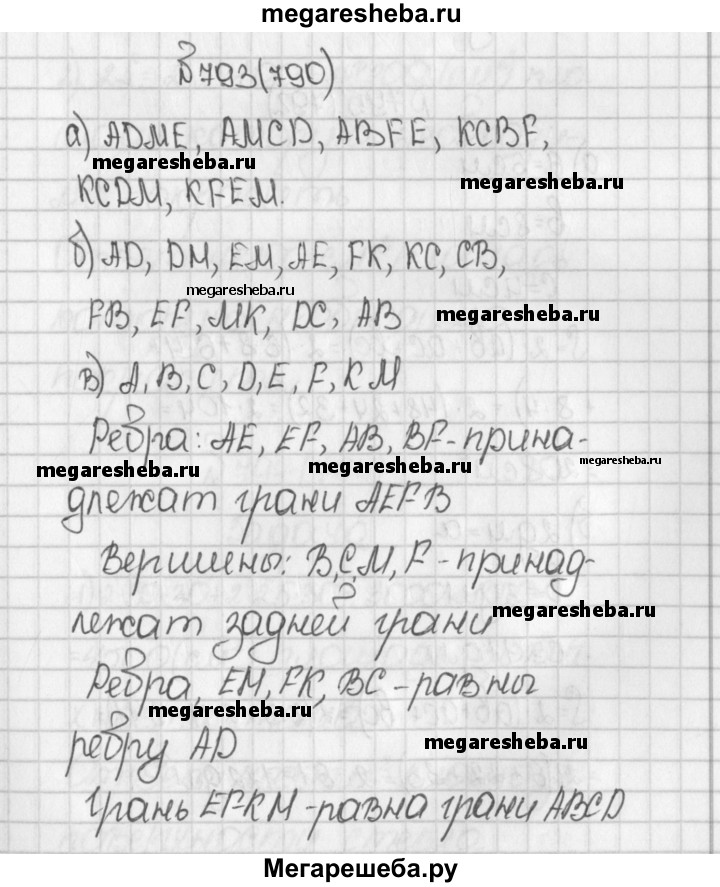 megaresheba.ru
№793(790)
а) ADME, AMCD, ABFE, KCBF,
megaresheba.ru
megaresheba.ru
KCDM, KFEM.
б) AD, DM, EM, AE, FK, KC, CB,
megaresheba.ru
FB, EF, MK, DC, AB
megaresheba.ru
в) A, B, C, D, E, F, K M
Ребра: AE, EF, AB, BF - прина-
megaresheba.ru
megaresheba.ru
megaresheba.ru
длежат грани AEFB
Вершины: B, C, M, F - принад-
лежат задней грани
megaresheba.ru
Ребра, EM, FK, BC - равны
megaresheba.ru
ребру AD
megaresheba.ru
Грань EFKM - равна грани ABCD
Мегарешеба.ру